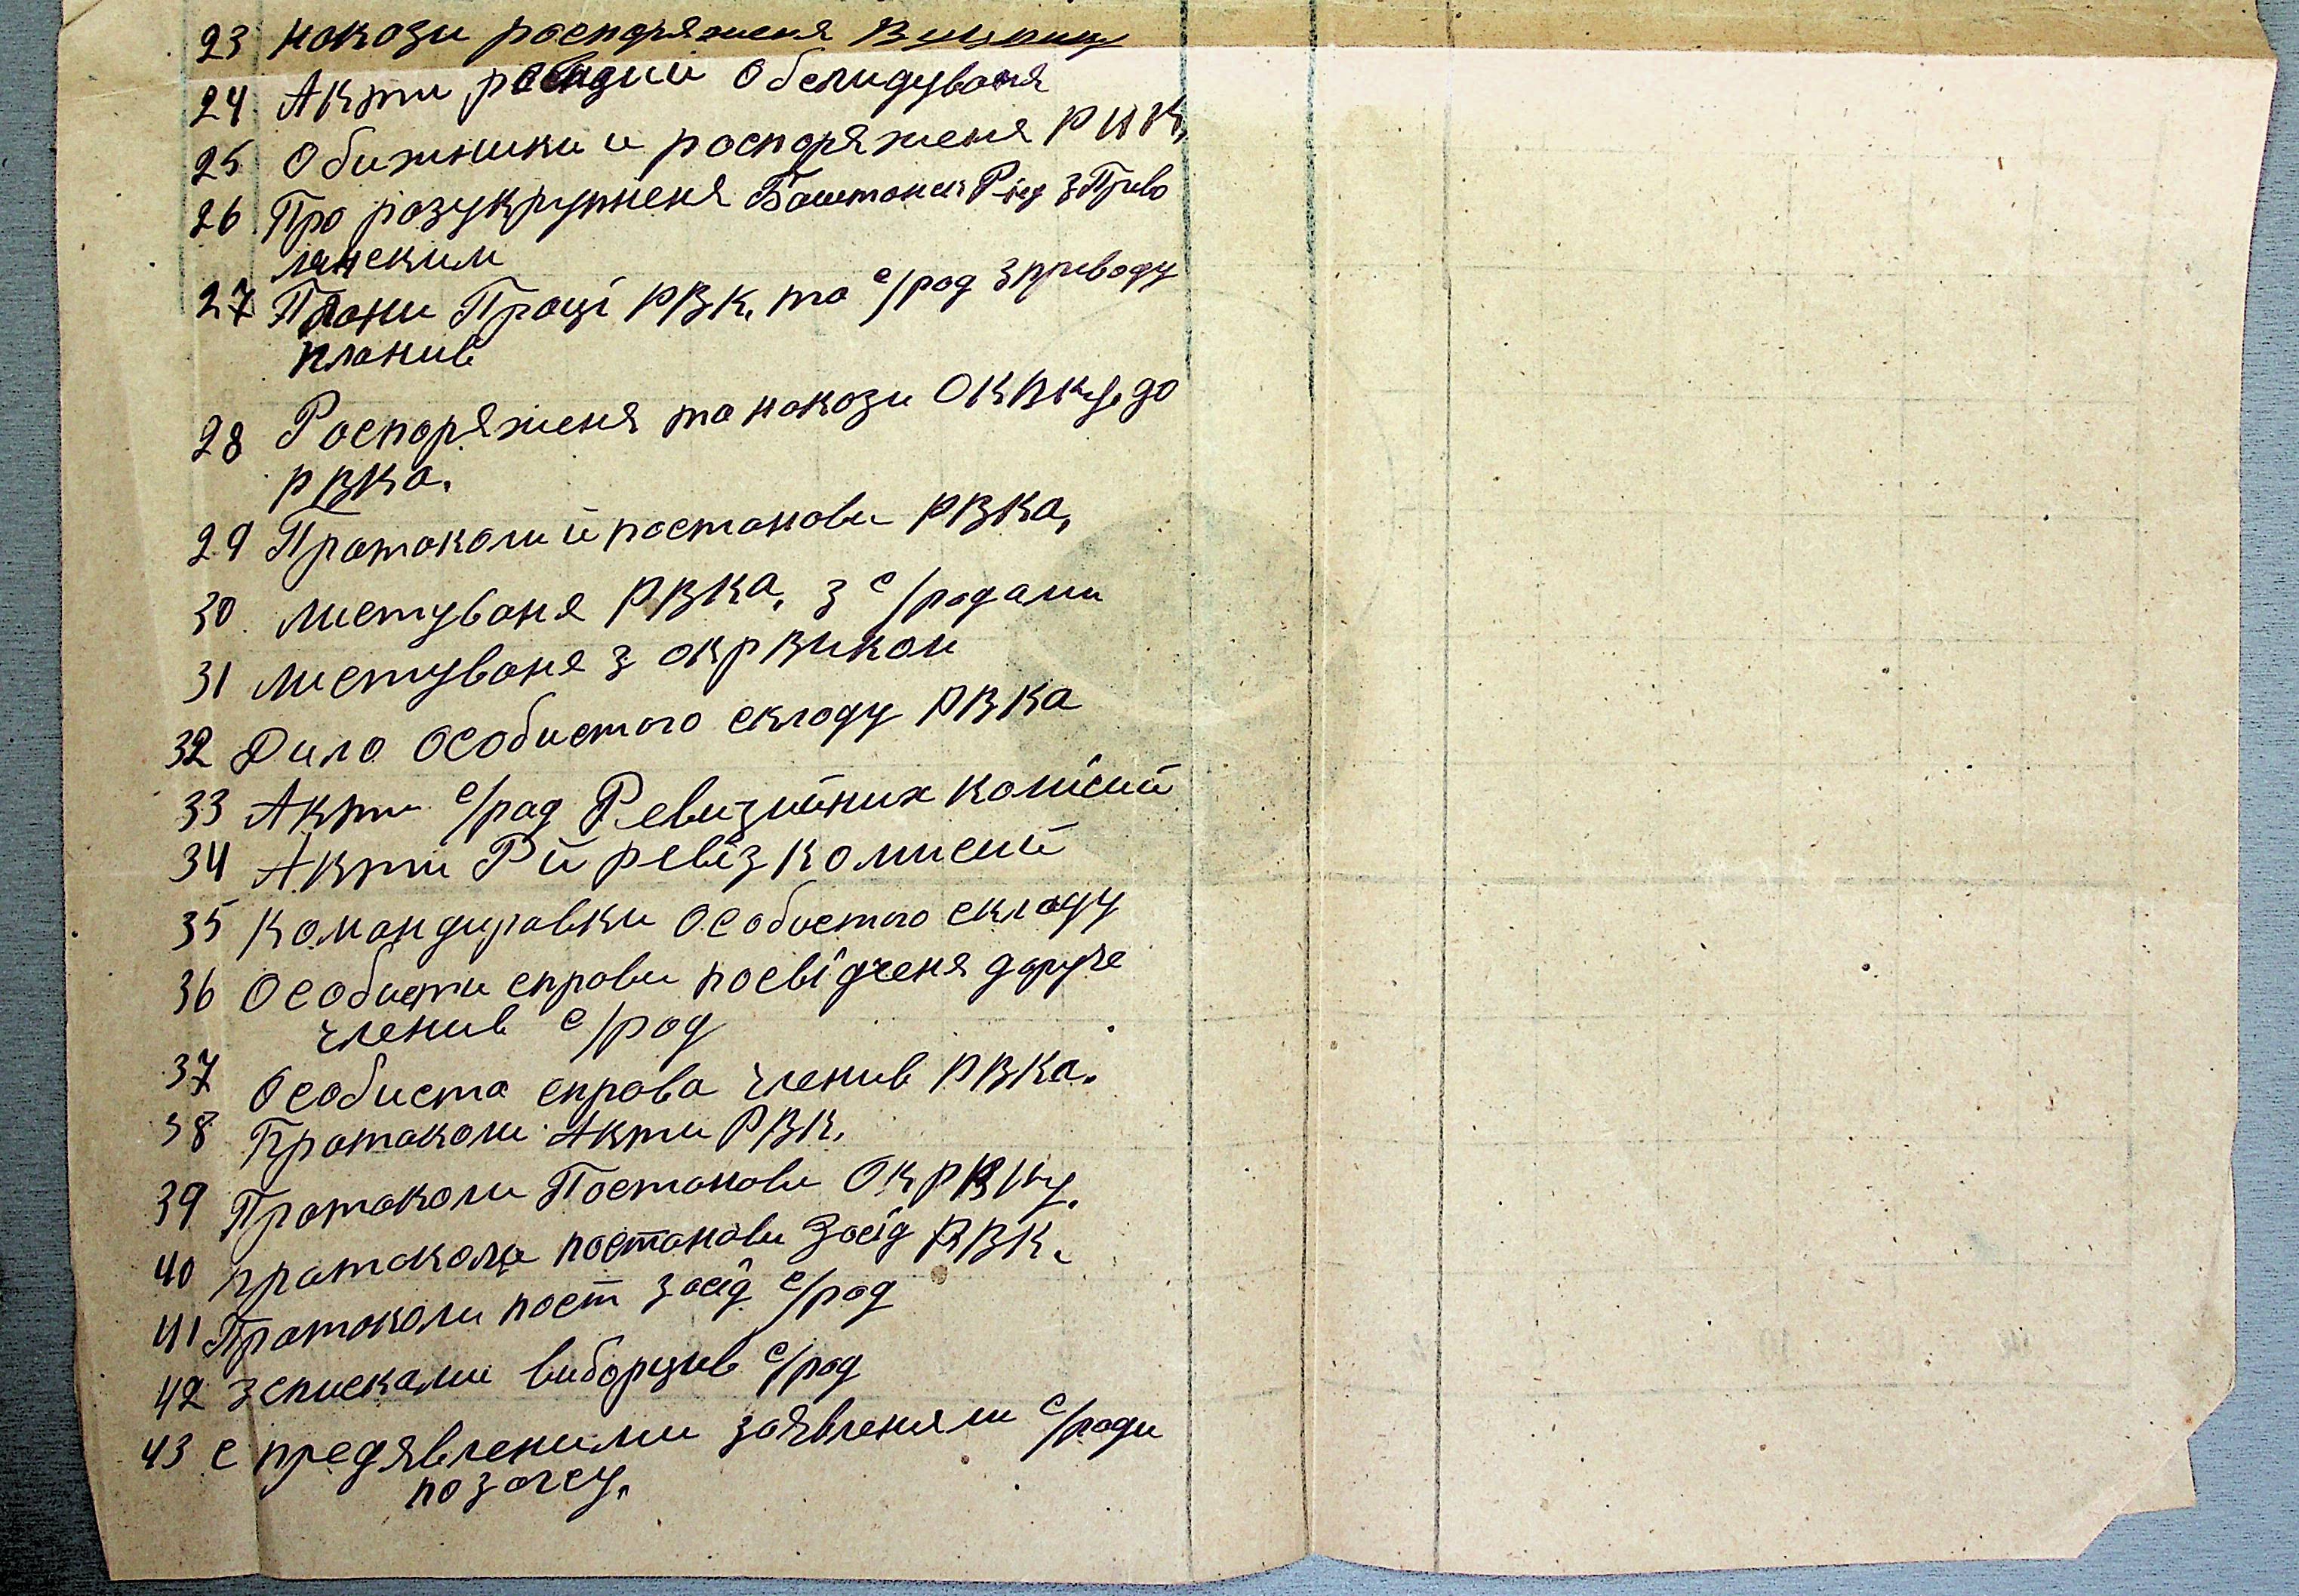 23 накази распоряженя Вуцвику
24 Акти ревизий Обслидуваня
25 Обижники и распоряженя РИК,
26 Про розукрупненя Баштанск Рінд З Приво
лянским
27 Плани Праці РВК, та с/рад З приводу
планив
28 Распоряженя та накази ОКВКу, до
РВКа.
29 Протоколи й постанови РВКа,
30 листуваня РВКа, з с/радами
31 листуваня з окрвиком
32 Дило Особистого складу РВКа
33 Акти с/рад Ревизийних комісий
34 Акти Рй ревіз комисий
35 Командировки Особистого складу
36 Особисти справи посвідченя доруче
членив с/рад
37 Особиста справа членив РВКа.
38 Протоколи Акти РВК,
39 Протоколи Постанови ОкрВКу.
40 протоколи постанови Засід РВК.
41 Протоколи пост засід с/рад
42 З списками виборцив с/рад
43 С предявленими заявленями с/ради
позачеу.